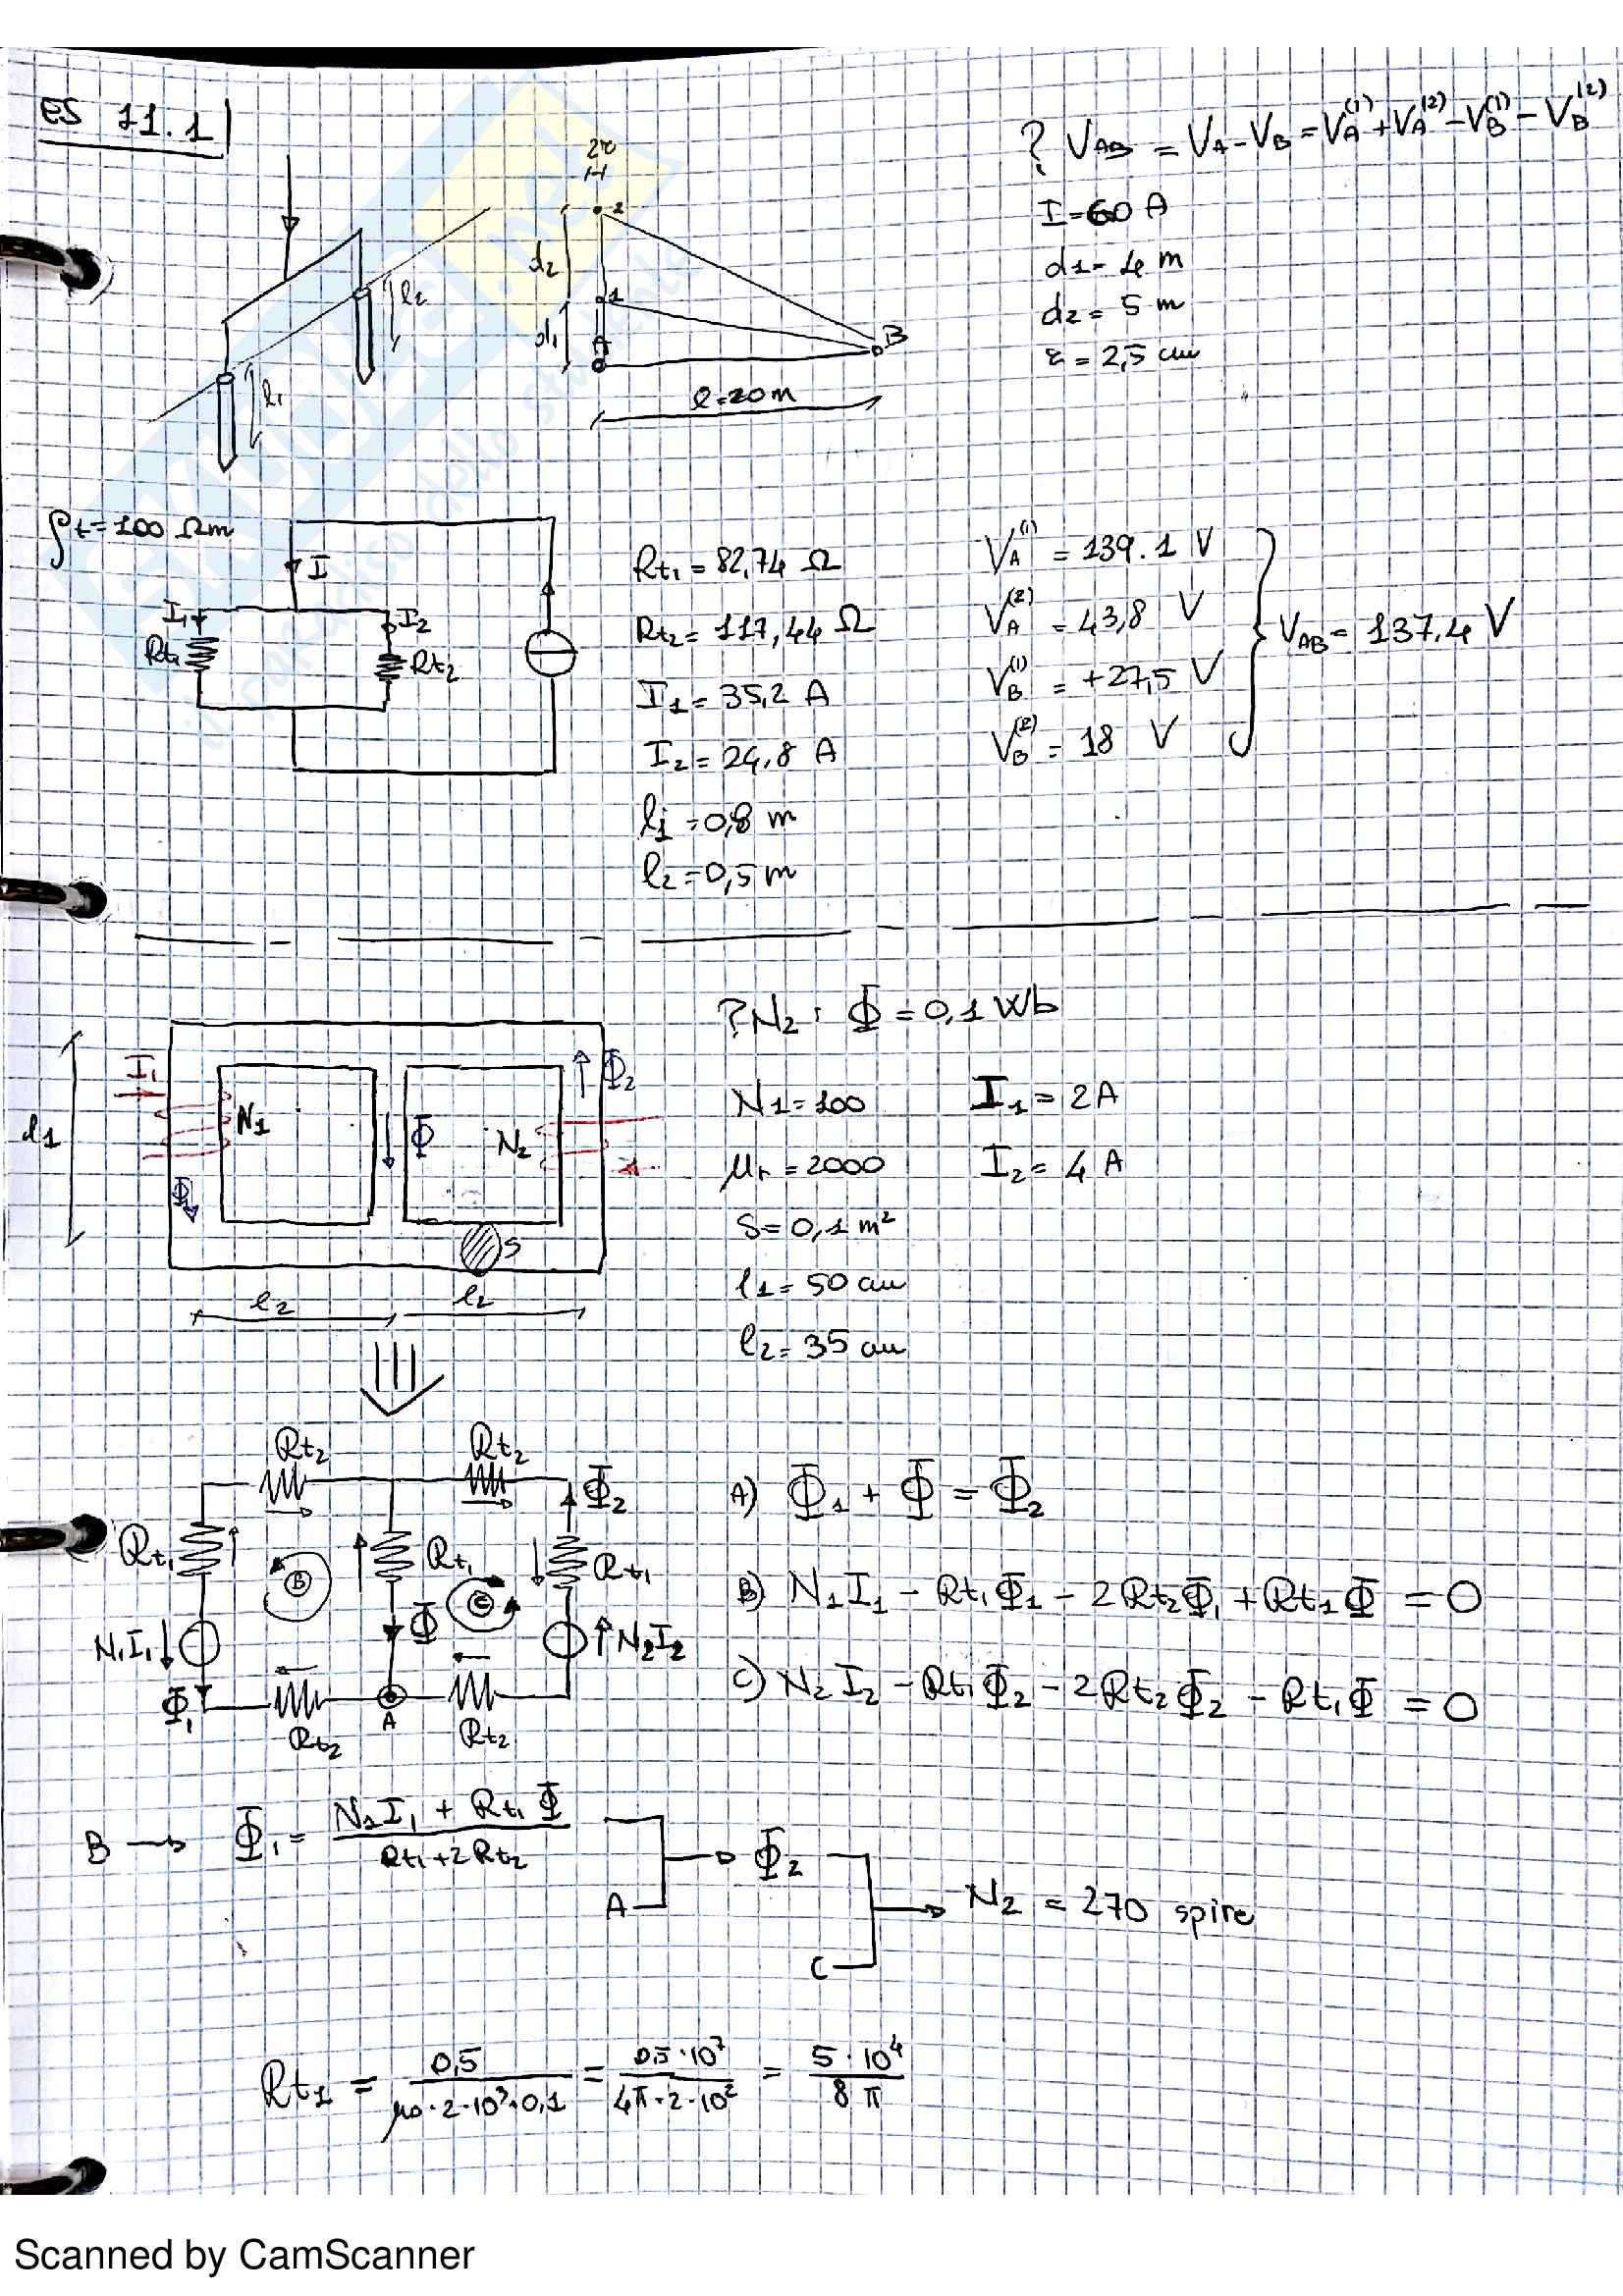 ES 11.1
? V_AB = V_A - V_B = V_A^(1) + V_A^(2) - V_B^(1) - V_B^(2)
I = 60 A
d1 = 4 m
d2 = 5 m
r = 2,5 cm
2r
2
d2
1
d1
A
B
l = 20 m
l2
l1
ρt = 100 Ωm
I
I1
I2
Rt1
Rt2
Rt1 = 82,74 Ω
Rt2 = 117,44 Ω
I1 = 35,2 A
I2 = 24,8 A
l1 = 0,8 m
l2 = 0,5 m
V_A^(1) = 139.1 V
V_A^(2) = 43,8 V
V_B^(1) = +27,5 V
V_B^(2) = 18 V
V_AB = 137.4 V
? N2 : Φ = 0,1 Wb
N1 = 100
I1 = 2 A
μr = 2000
I2 = 4 A
S = 0,1 m²
l1 = 50 cm
l2 = 35 cm
I1
N1
Φ
N2
Φ2
Φ1
l1
S
l2
l2
Rt2
Rt2
Φ2
Rt1
B
Rt1
C
Rt1
N1I1
Φ
N2I2
Φ1
Rt2
A
Rt2
A) Φ1 + Φ = Φ2
B) N1I1 - Rt1Φ1 - 2Rt2Φ1 + Rt1Φ = 0
C) N2I2 - Rt1Φ2 - 2Rt2Φ2 - Rt1Φ = 0
B → Φ1 = (N1I1 + Rt1Φ) / (Rt1 + 2Rt2)
A
→ Φ2
C
→ N2 = 270 spire
Rt1 = 0,5 / (μ0 · 2 · 10³ · 0,1) = 0,5 · 10⁷ / (4π · 2 · 10²) = 5 · 10⁴ / 8π
Scanned by CamScanner